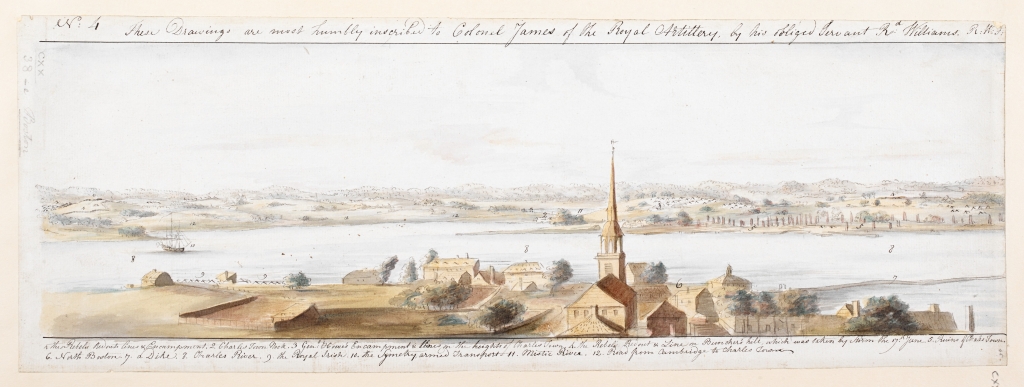 No. 4 These Drawings are most humbly inscribed to Colonel James of the Royal Artillery, by his obliged Servant Rd. Williams. R.W.F.
1 the Rebels Redoubt Lines & Encampment. 2 Charles Town Neck. 3 Genl. Howes Encampment & Lines on the heights of Charles Town 4 the Rebels Redout & Line on Bunkers hill which was taken by storm the 17th June. 5. Ruins of Charles Town.
6. North Boston. 7. a Dike. 8. Charles River. 9. the Royal Irish. 10. the Symetry armed Transport. 11. Mistic River. 12. Road from Cambridge to Charles Town
8
8
6
8
CXX
38
Boston